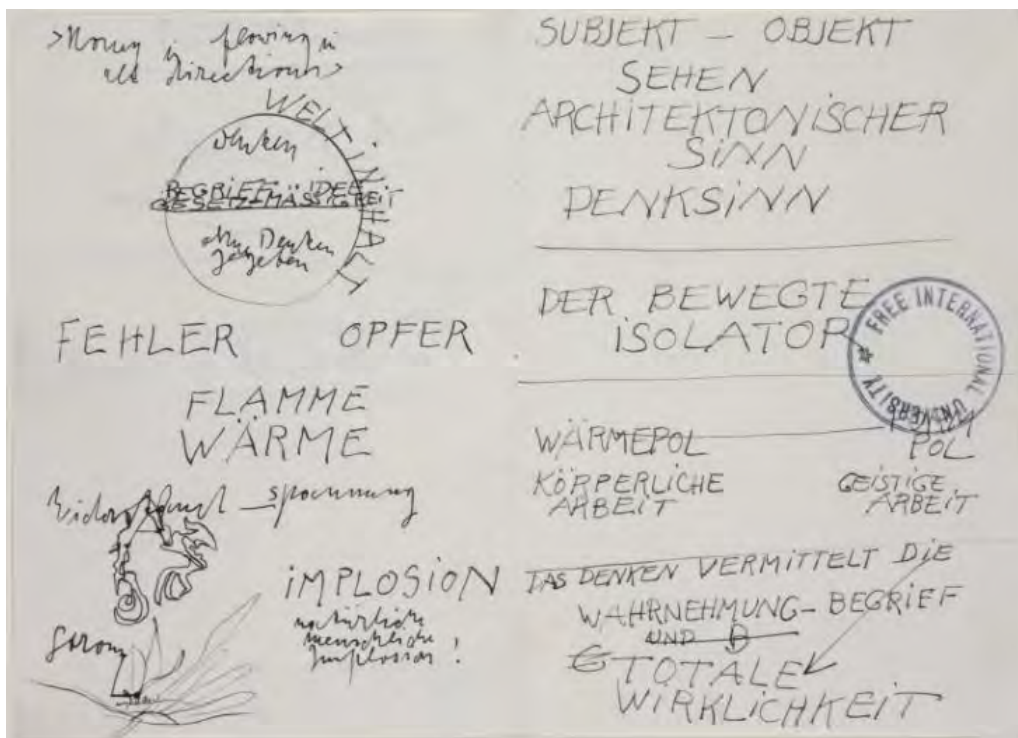 >Money is flowing in
all directions>
WELTINHALT
Denken
BEGRIFF IDEE
GESETZMÄSSIGKEIT
ohne Denken
gegeben
FEHLER OPFER
FLAMME
WÄRME
Widerstand – spannung
Strom
iMPLOSiON
natürliche
menschliche
Implosion!
SUBJEKT – OBJEKT
SEHEN
ARCHiTEKTONiSCHER
SiNN
DENKSiNN
DER BEWEGTE
iSOLATOR
FREE INTERNATIONAL UNIVERSITY
WÄRMEPOL
POL
KÖRPERLiCHE
ARBEiT
GEiSTiGE
ARBEiT
DAS DENKEN VERMiTTELT DiE
WAHRNEHMUNG – BEGRiFF
UND
TOTALE
WiRKLiCHKEiT